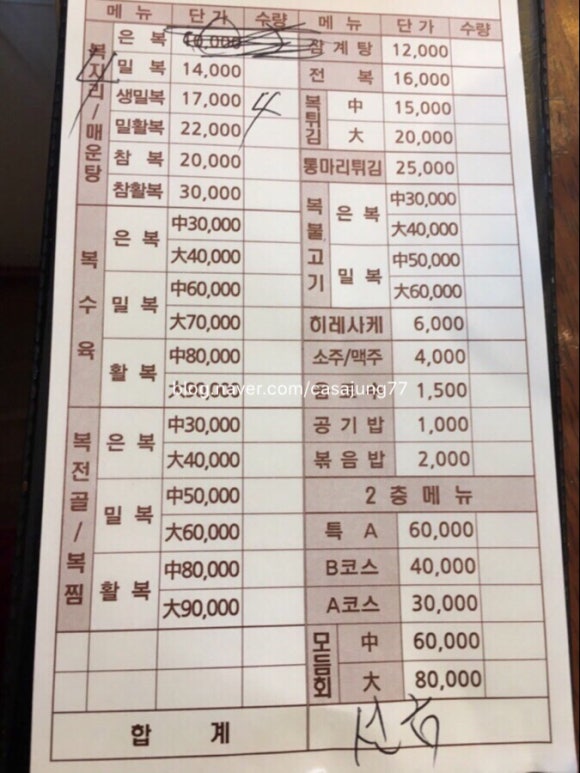 메뉴 단가 수량 메뉴 단가 수량
복지리/매운탕
은복
밀복 14,000
생밀복 17,000 4
밀활복 22,000
참복 20,000
참활복 30,000
복수육
은복 中30,000
大40,000
밀복 中60,000
大70,000
활복 中80,000
복전골/복찜
은복 中30,000
大40,000
밀복 中50,000
大60,000
활복 中80,000
大90,000
합계
삼계탕 12,000
전복 16,000
복튀김 中 15,000
大 20,000
통마리튀김 25,000
복불고기
은복 中30,000
大40,000
밀복 中50,000
大60,000
히레사케 6,000
소주/맥주 4,000
1,500
공기밥 1,000
볶음밥 2,000
2층메뉴
특A 60,000
B코스 40,000
A코스 30,000
모듬회 中 60,000
大 80,000
blog.naver.com/casajung77